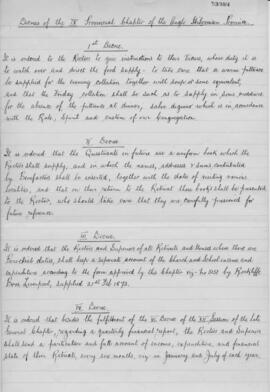 Decrees of the IX Provincial Chapter of the Anglo Hibernian Province
1st Decree.
It is ordered to the Rectors to give instructions to those whose duty it is
to watch over and direct the food supply – to take care that a warm pittance
be supplied for the evening collation together with soup or some equivalent,
and that the Friday collation shall be such as to supply in some measure
for the absence of the pittance at dinner, salva dignis which is in accordance
with the Rule, Spirit and custom of our Congregation.
II Decree
It is ordered that the Questuanti in future use a uniform book which the
Rectors shall supply, and in which the names, addresses & sums contributed
by Benefactors shall be inserted, together with the date of visiting various
localities, and that on their return to the Retreat these books shall be presented
to the Rector, who should take care that they are carefully preserved for
future reference.
III Decree.
It is ordered that the Rectors and Superiors of all Retreats and Houses where there are
Parochial duties, shall keep a separate account of the Church and School income and
expenditure according to the form approved by the Chapter viz: No 1051 by Rockliffe
Bros. Liverpool, supplied 21st Feb 1893.
IV Decree.
It is ordered that besides the fulfilment of the VI Decree of the XX Session of the late
General Chapter, regarding a quarterly financial report, the Rectors and Superiors
shall send a particular and full account of income, expenditure, and financial
state of their Retreats, every six months, viz in January and July of each year.